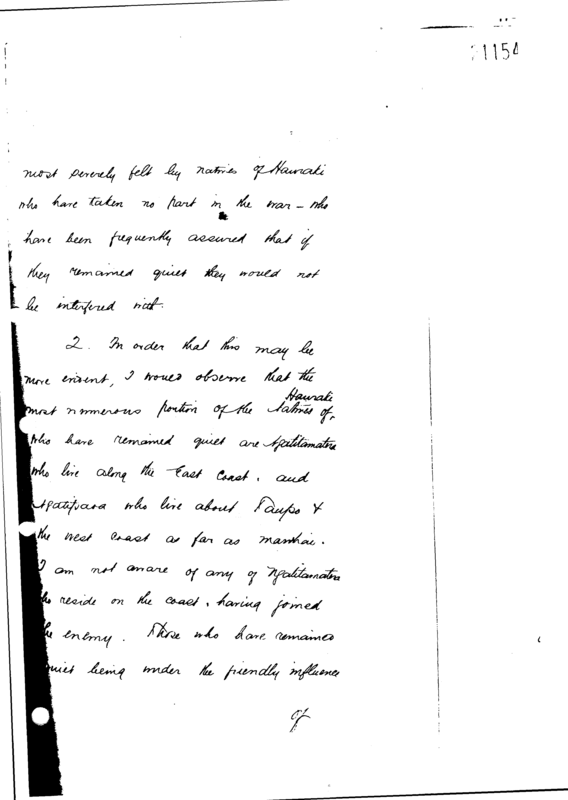 21154
most severely felt by natives of Hauraki
who have taken no part in the war – who
have been frequently assured that if
they remained quiet they would not
be interfered with.
2. In order that this may be
more evident, I would observe that the
Hauraki
most numerous portion of the Natives of,
who have remained quiet are Ngatitamatera
who live along the East Coast, and
Ngatipaoa who live about Taupo &
the west coast as far as
I am not aware of any of Ngatitamatera
who reside on the coast, having joined
the enemy. Those who have remained
quiet being under the friendly influence
of